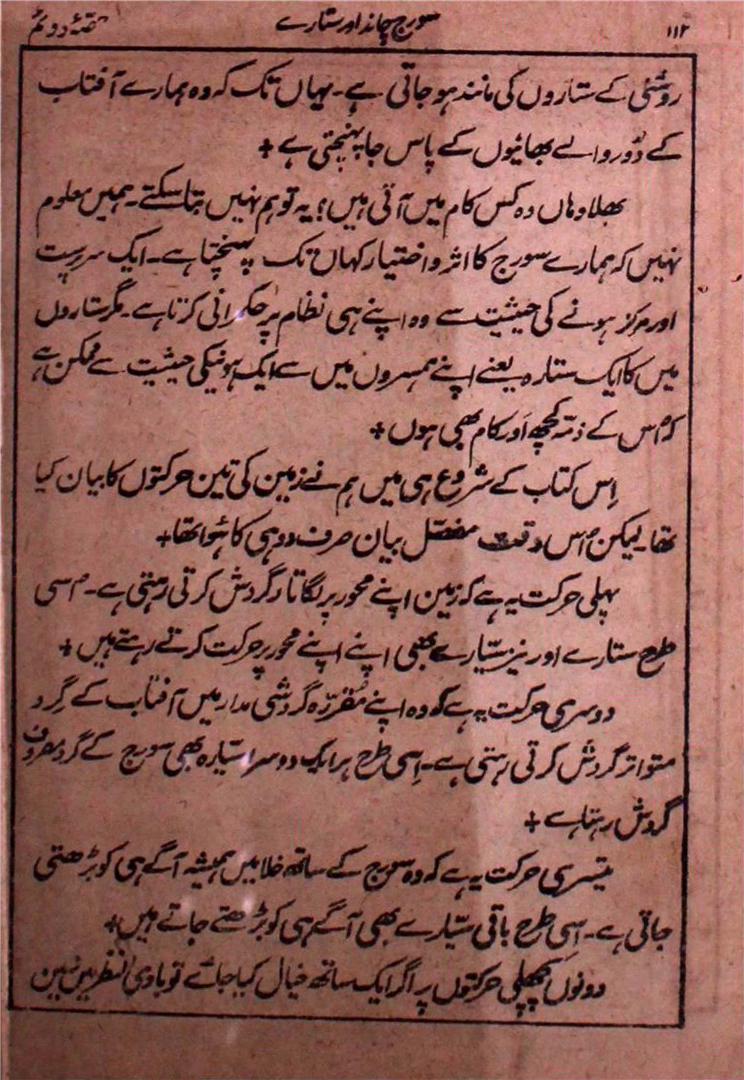 ۱۱۲ سورج چاند اور ستارے حصّہ دوئم
روشنی کے ستاروں کی مانند ہو جاتی ہے۔ یہاں تک کہ وہ ہمارے آفتاب
کے دُور والے بھائیوں کے پاس جا پہنچتی ہے +
بھلا وہاں وہ کس کام میں آتی ہیں؛ یہ تو ہم نہیں بتا سکتے۔ ہمیں معلوم
نہیں کہ ہمارے سورج کا اثر و اختیار کہاں تک پہنچتا ہے۔ ایک سرپرست
اور مرکز ہونے کی حیثیت سے وہ اپنے ہی نظام پر حکمرانی کرتا ہے۔ مگر ستاروں
میں کا ایک ستارہ یعنے اپنے ہمسروں میں سے ایک ہونیکی حیثیت سے ممکن ہے
کہ اُس کے ذمّہ کچھ اَور کام بھی ہوں +
اِس کتاب کے شروع ہی میں ہم نے زمین کی تین حرکتوں کا بیان کیا
تھا۔ لیکن اُس وقت مفصّل بیان صرف دو ہی کا ہُوا تھا +
پہلی حرکت یہ ہے کہ زمین اپنے محور پر لگاتار گردش کرتی رہتی ہے۔ اُسی
طرح ستارے اور نیز سیّارے بھی اپنے اپنے محور پر حرکت کرتے رہتے ہیں +
دوسری حرکت یہ ہے کہ وہ اپنے مُقرّرہ گردشی مدار میں آفتاب کے گِرد
متواتر گردش کرتی رہتی ہے۔ اِسی طرح ہر ایک دوسرا سیّارہ بھی سورج کے گرد مصروف
گردش رہتا ہے +
تیسری حرکت یہ ہے کہ وہ سورج کے ساتھ خلا میں ہمیشہ آگے ہی کو بڑھتی
جاتی ہے۔ اِسی طرح باقی سیّارے بھی آگے ہی کو بڑھتے جاتے ہیں +
دونوں پچھلی حرکتوں پر اگر ایک ساتھ خیال کیا جائے تو بادی النظر میں زمین